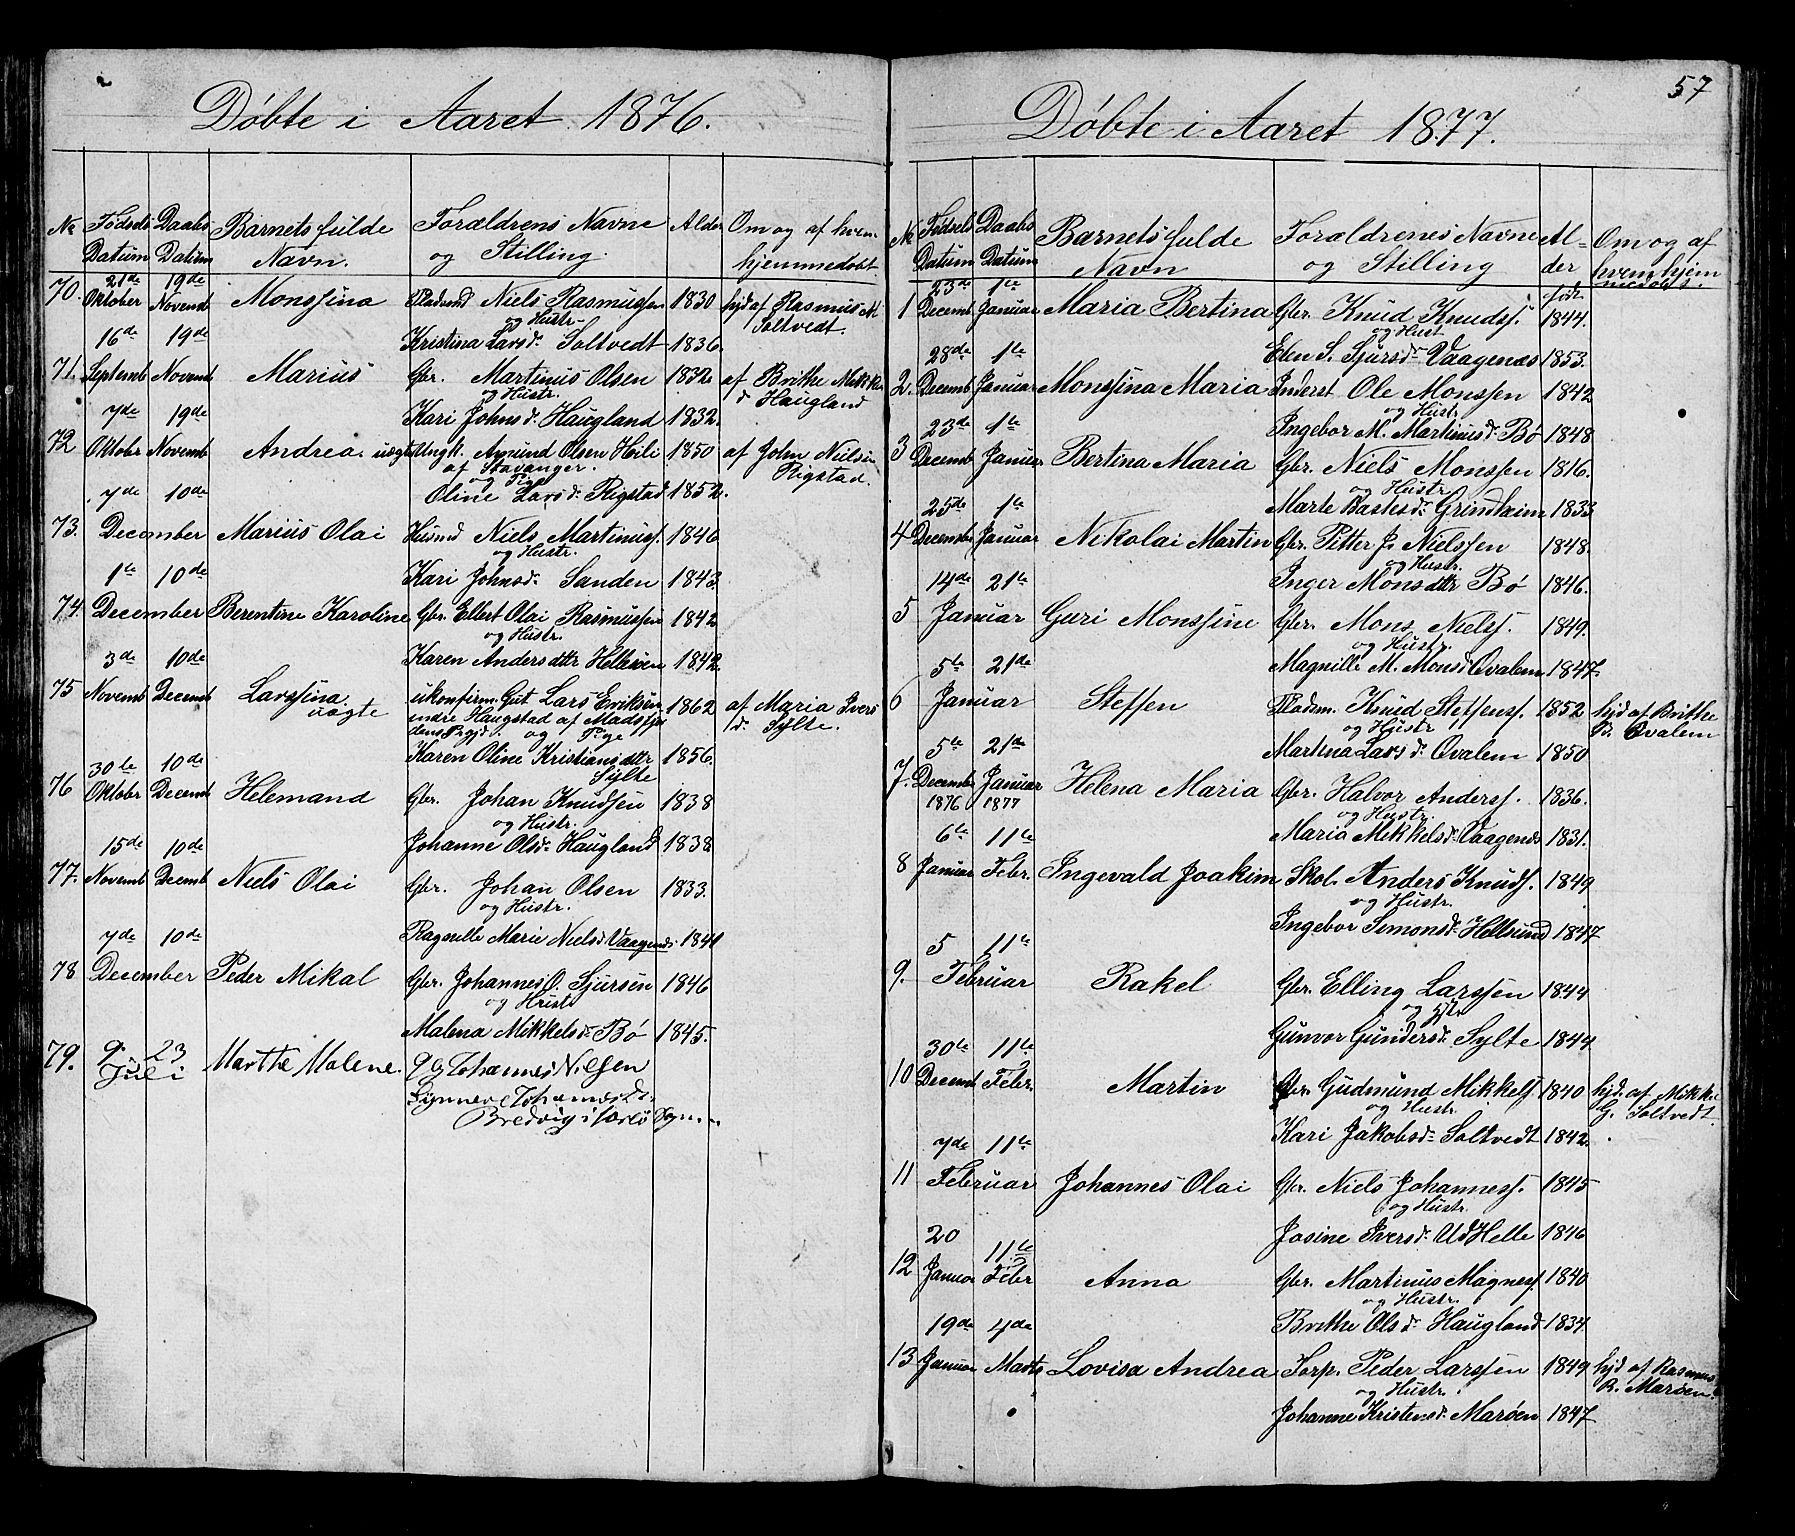 Døbte i Aaret 1876.
No Fødsels Datum Daabs Datum Barnets fulde Navn. Forældrens Navne og Stilling. Alder Om og af hvem hjemmedøbt
70. 21de Oktober 19de Novemb Monssina Pladsmd Niels Rasmussen 1830 hjd af Rasmus N. Soltvedt.
og Hustr.
Kristina Larsd. Soltvedt 1836.
71. 16de Septemb 19de Novemb Marius Gbr. Martinus Olsen 1832. af Brithe Mikkels d. Haugland
og Hustr.
Kari Johnsd. Haugland 1832.
72 7de Oktobr 19de Novemb Andrea uægte Ungk. Amund Olsen Heili 1850 af John Nielsen Rigstad.
af Stavanger.
og Pige
Oline Larsd. Rigstad 1852.
73. 7de 10de December Marius Olai Husmd Niels Martinuss. 1846
og Hustr.
Kari Johnsd. Sanden 1843.
74. 1te 10de December Berentine Karoline Gbr. Ellert Olai Rasmussen 1842
og Hustr.
Karen Andersdttr Helleven 1842.
75 3de Novemb 10de Decemb Larssina uægte ukonfirm. Gut Lars Eriksen 1862 af Maria Ivers d. Sylte.
indre Haugstad af
og Pige
Karen Oline Kristiansdttr Sylte 1856.
76 30te Oktobr 10de Decemb Helemand Gbr. Johan Knudsen 1838
og Hustr.
Johanne Olsd. Haugland 1838
77. 15de Novemb 10de Decemb Niels Olai Gbr. Johan Olsen 1833.
og Hustr.
Ragnille Marie Nielsd. Vaagenes 1841
78 7de 10de December Peder Mikal Gbr. Johannes O. Sjursen 1846
og Hustr
Malena Mikkelsd. Bø 1845.
79. 9. 23 Juli Marthe Malene. Johannes Nilsen
Johannesd.
Bredvig i Førlø Sogn

57
Døbte i Aaret 1877.
No Fødsels Datum Daabs Datum Barnets fulde Navn Forældrenes Navne og Stilling Alder Om og af hvem hjemmedøbt.
1 23de Decemb 1te Januar Maria Bertina Gbr. Knud Knuds. født 1844.
og Hust
Elen S. Sjursd. Vaagenæs 1853.
2. 28de Decemb 1te Januar Monssina Maria Inderst Ole Monssen 1842
og Hustr
Ingebor M. Martinusd. Bø 1848.
3 23de Decemb 1te Januar Bertina Maria Gbr. Niels Monssen 1816.
og Hustr
Marte Bastesd. Grindheim 1833
4 25de Decemb 1te Januar Nikolai Martin Gbr. Pitter J. Nielssen 1848.
og Hustr.
Inger Monsdttr Bø 1846.
5 14de 21te Januar Guri Monssine Gbr. Mons Niels. 1849.
og Hustr.
Magnille M. Monsd. Qvalem 1847.
6 5te 21de Januar Steffen Pladsm. Knud Steffens. 1852 hjd af Brithe B. Qvalem
og Hustr
Martina Larsd. Qvalem 1850
7. 5te Decemb 1876 21de Januar 1877 Helena Maria Gbr. Halvor Anders. 1836.
og Hustr.
Maria Mikkelsd. Vaagenes 1831.
8 6te Januar 11te Febr. Ingevald Joakim Skol. Anders Knuds. 1849
og Hustr.
Ingebor Simonsd. Hellsund 1847
9. 5 11te Februar Rakel Gbr. Elling Larssen 1844
og Hstr
Gunvor Gundersd. Sylte 1844
10 30te Decemb 11te Febr. Martin Gbr. Gudmund Mikkels. 1840 hjd. af Mikkel G. Soltvedt.
og Hustr.
Kari Jakobsd. Soltvedt 1842.
11 7de 11te Februar Johannes Olai Gbr. Niels Johanness. 1845
og Hustr.
Josine Iversd. UdHelle 1846
12 20 Januar 11te Febr Anna Gbr. Martinus Magnes. 1840
og Hustr.
Brithe Olsd. Haugland 1834.
13 19de Januar 4de Marts Lovisa Andrea Forp. Peder Larssen 1849 hjd af Rasmus R. Marøen.
og Hustr.
Johanne Kristensd. Marøen 1847